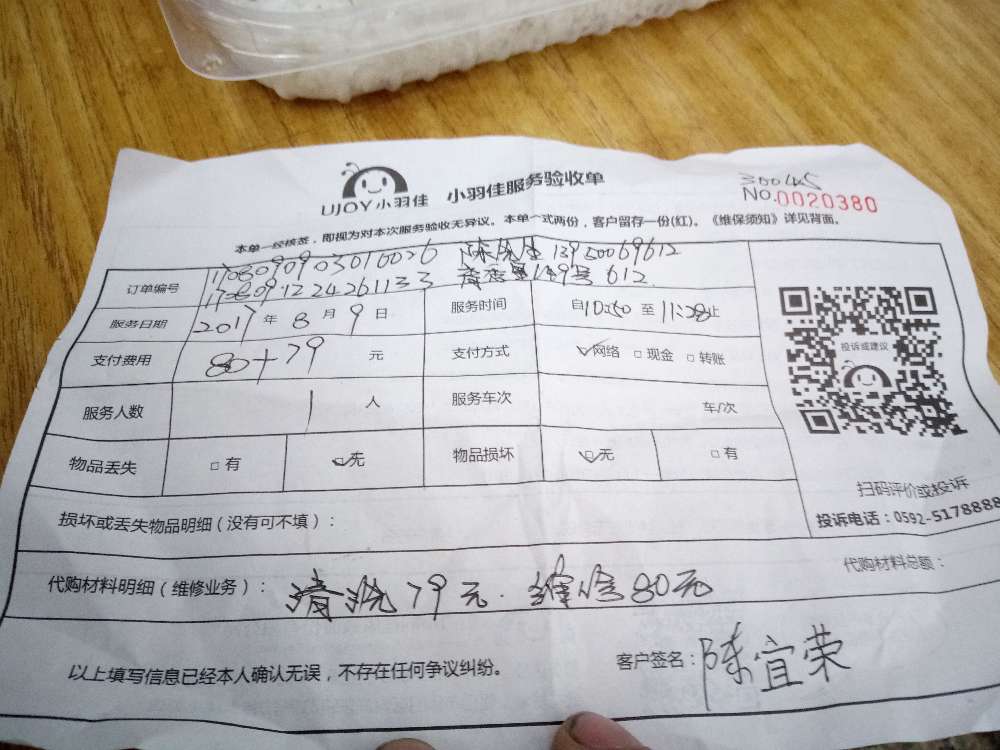 UJOY小羽佳 小羽佳服务验收单
300445
NO.0020380
本单一经核签，即视为对本次服务验收无异议。本单一式两份，客户留存一份(红)。《维保须知》详见背面。
订单编号 陈先生 13950069612
612
服务日期 2017 年 8 月 9 日 服务时间 自10:50 至 11:28止
支付费用 80+79 元 支付方式 ☑网络 □现金 □转账
投诉或建议
服务人数 1 人 服务车次 车/次
物品丢失 □有 ☑无 物品损坏 ☑无 □有
扫码评价或投诉
损坏或丢失物品明细（没有可不填）：
投诉电话：0592-5178888
代购材料明细（维修业务）： 清洗79元. 维修80元
代购材料总额：
以上填写信息已经本人确认无误，不存在任何争议纠纷。
客户签名：陈宜荣